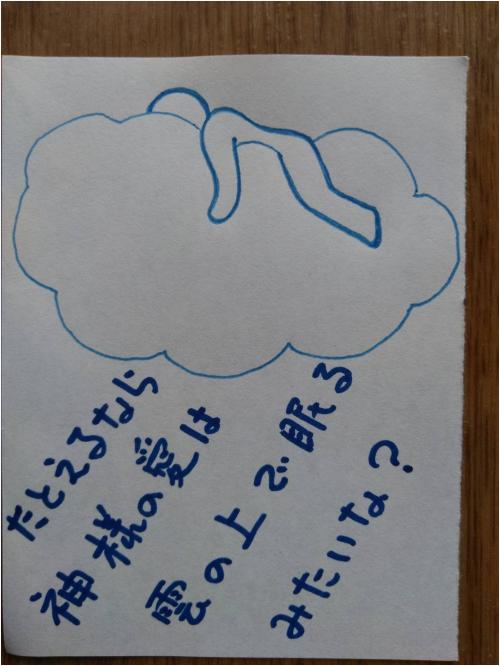 たとえるなら
神様の愛は
雲の上で眠る
みたいな？